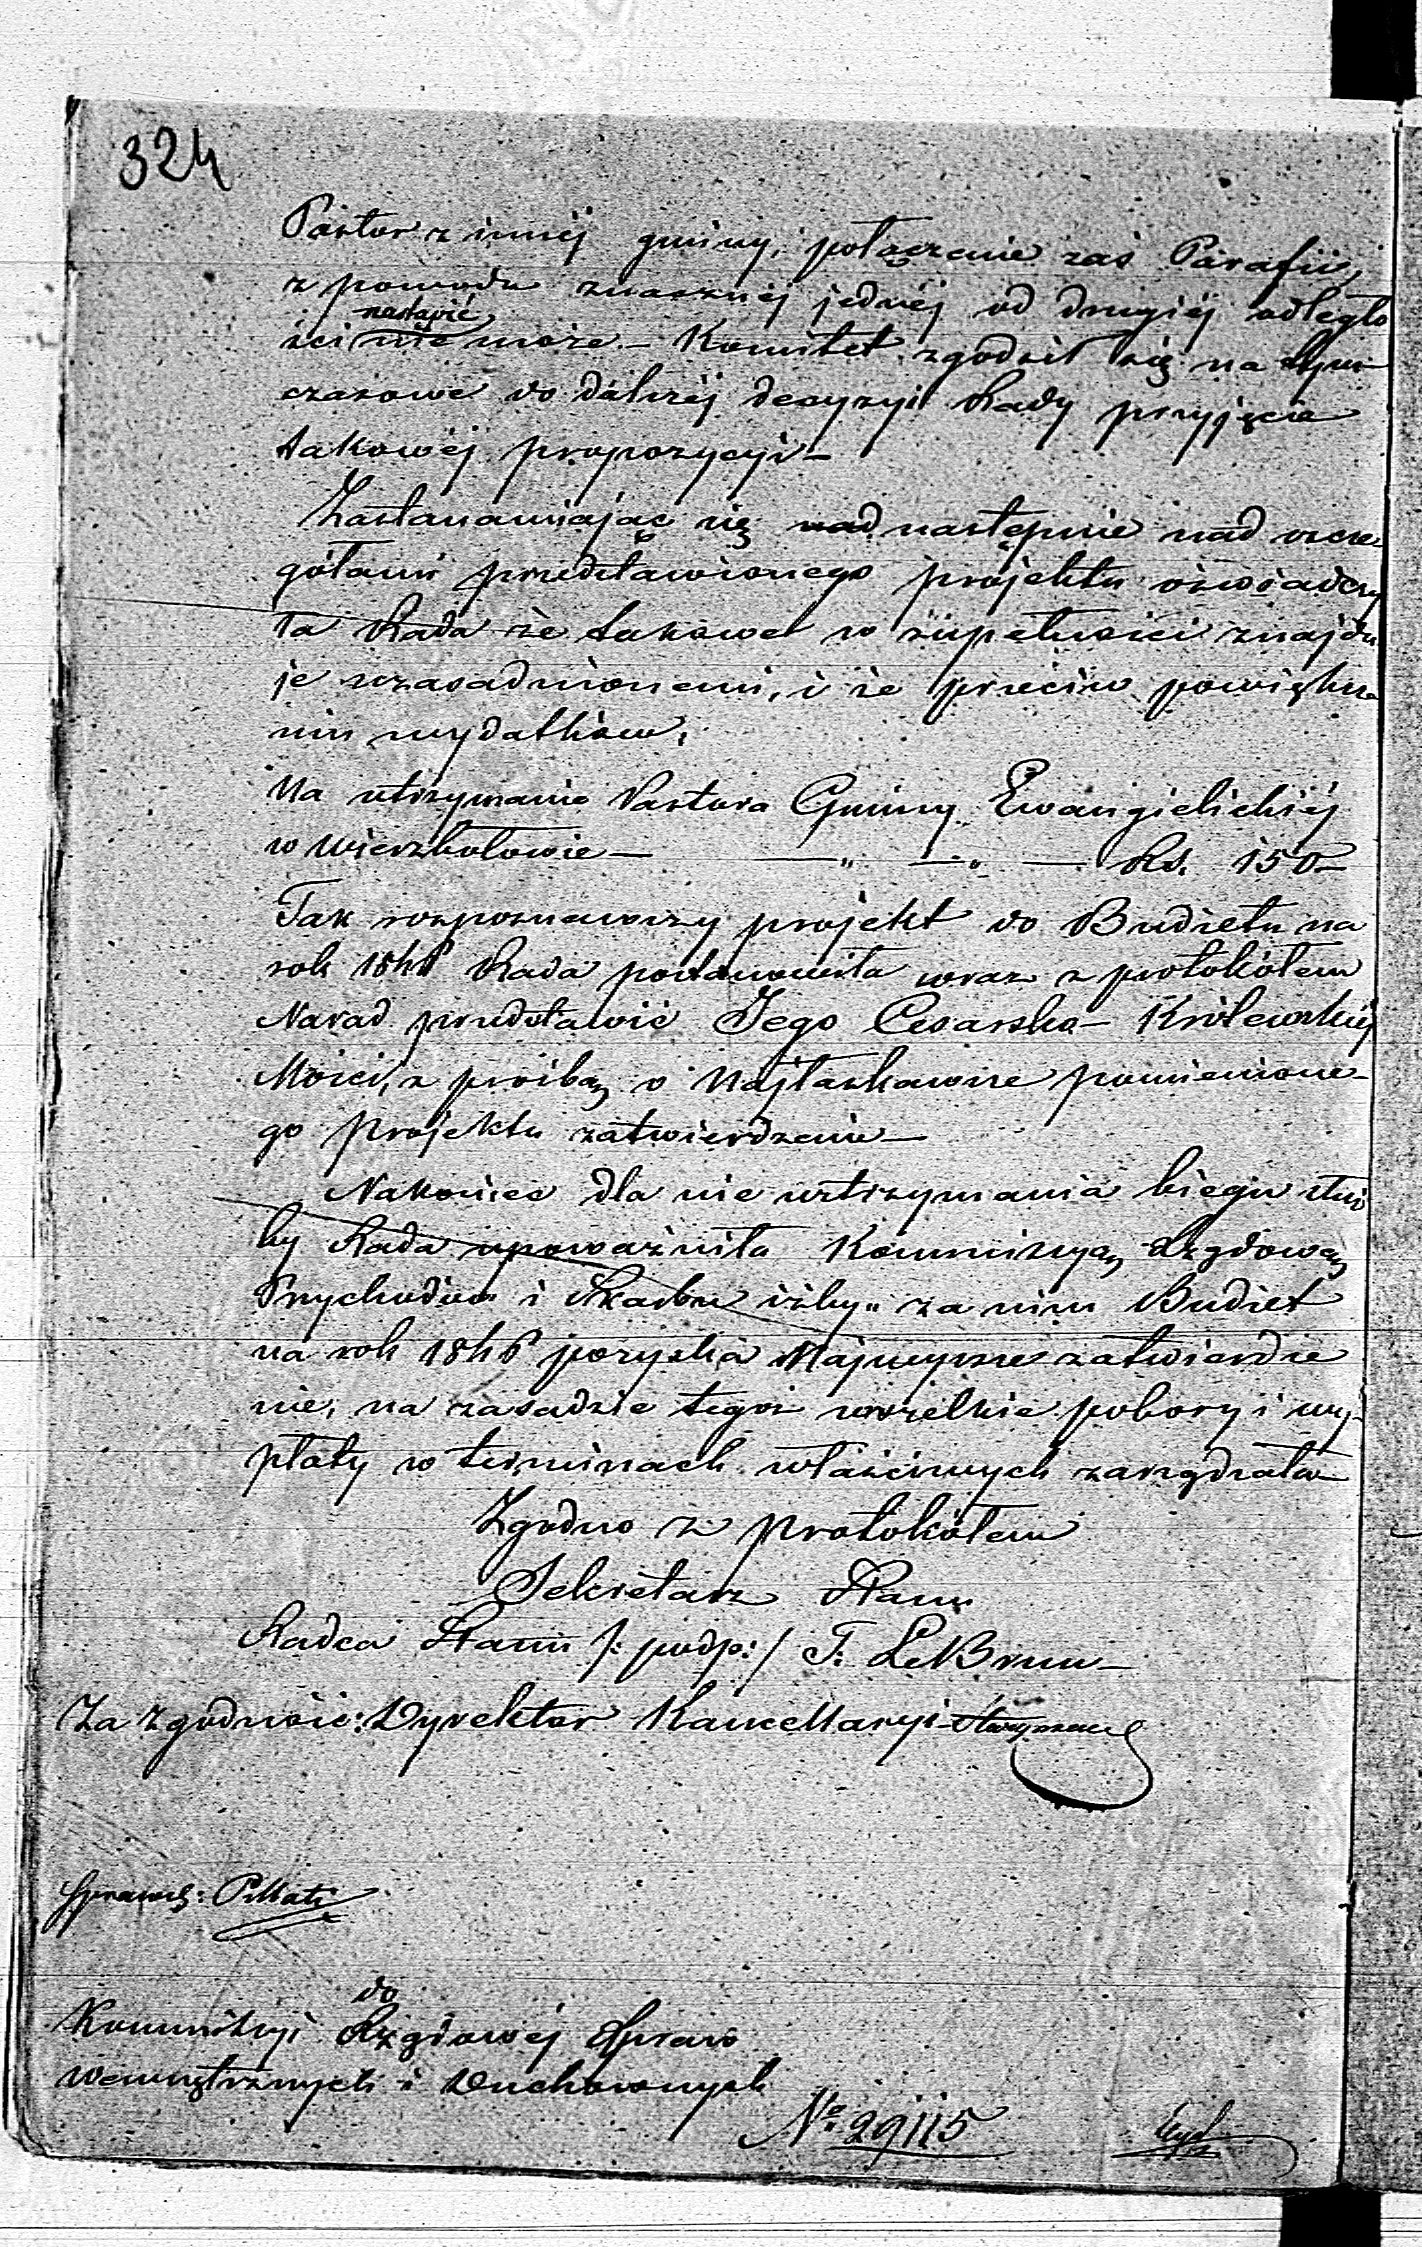 324
Pastor z innéj gminy, połączenie zaś Parafii,
z powodu znacznéj jednéj od drugiéj odległo
nastąpić
ści nie może – Komitet zgodził się na tym
czasowe do dalszéj decyzyi Rady przyjęcie
takowéj propozycyi –
Zastanawiając się nad następnie nad szcze
gółami przedstawionego projektu oświadczy
ła Rada że takowe w zupełności znajdu
je uzasadnionemi, i że przeciw powiększe
niu wydatków,
Na utrzymanie Pastora Gminy Ewangielickiéj
w Wierzbołowie – — „ — „ — Rs. 150 –
Tak rozpoznawszy projekt do Budżetu na
rok 1846 Rada postanowiła wraz z protokółem
Narad przedstawić Jego Cesarsko – Królewskiéj
Mości, z prośbą o Najłaskawsze pomienione
go projektu zatwierdzenie –
Nakoniec dla nie wstrzymania biegu służ
by Rada upoważniła Kommissyą Rządową
Przychodów i Skarbu iżby „ za nim Budżet
na rok 1846 pozyska Najwyższe zatwierdze
nie, na zasadzie tegoż wszelkie pobory i wy-
płaty w terminach właściwych zarządzała
Zgodno z protokółem
Sekretarz Stanu
Radca Stanu /: podp: / T. Le Brun –
Za zgodność: Dyrektor Kancellaryi
Sprawdz:
do
Kommissyi Rządowéj Spraw
Wewnętrznych i Duchownych
No 29115